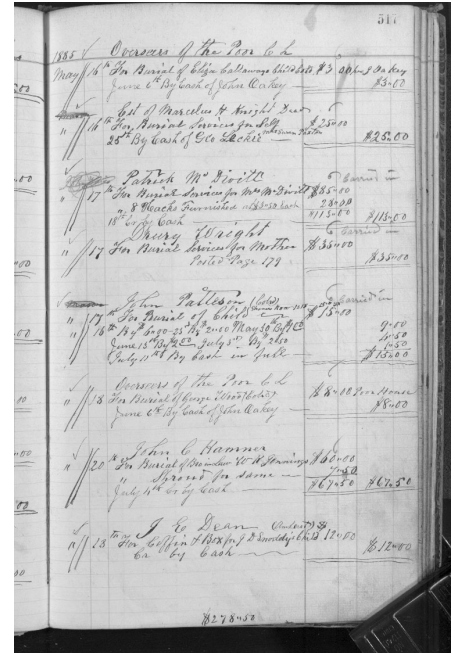 317
1885 Overseers of the Poor C L
May 16th For Burial of Eliza Callaways Child Cold $3.00 John J Oakey
June 6th By Cash of John Oakey $3.00
Est of Marcelus H Knight Decd
" 16th For Burial Services for Self $25.00
25th By Cash of Geo Leckie $25.00
Patrick McDivitt Carried in
" 17th For Burial Services for Mrs McDivitt $85.00
" 8 Hacks Furnished at $3.50 Each 28.00
18th Cr by Cash $113.00 $113.00
Drury Wright Carried in
" 17 For Burial Services for Mother $35.00
Posted Page 179 $35.00
John Patterson (Cold) Carried in
" 17th For Burial of Child $15.00
" 18th By
June 13th By July 5th By 2.50
July 11th By Cash in full $15.00
Overseers of the Poor C L
" 18 For Burial of George Wood (Cold) $8.00 Poor House
June 6th By Cash of John Oakey $8.00
John C Hamner
" 20 For Burial of Broinlaw W H Jennings $60.00
" for Same 7.50
July 4th Cr by Cash $67.50 $67.50
J E Dean
" 23th For Coffin & Box for J D Child 12.00
Cr by Cash $12.00
$278.50